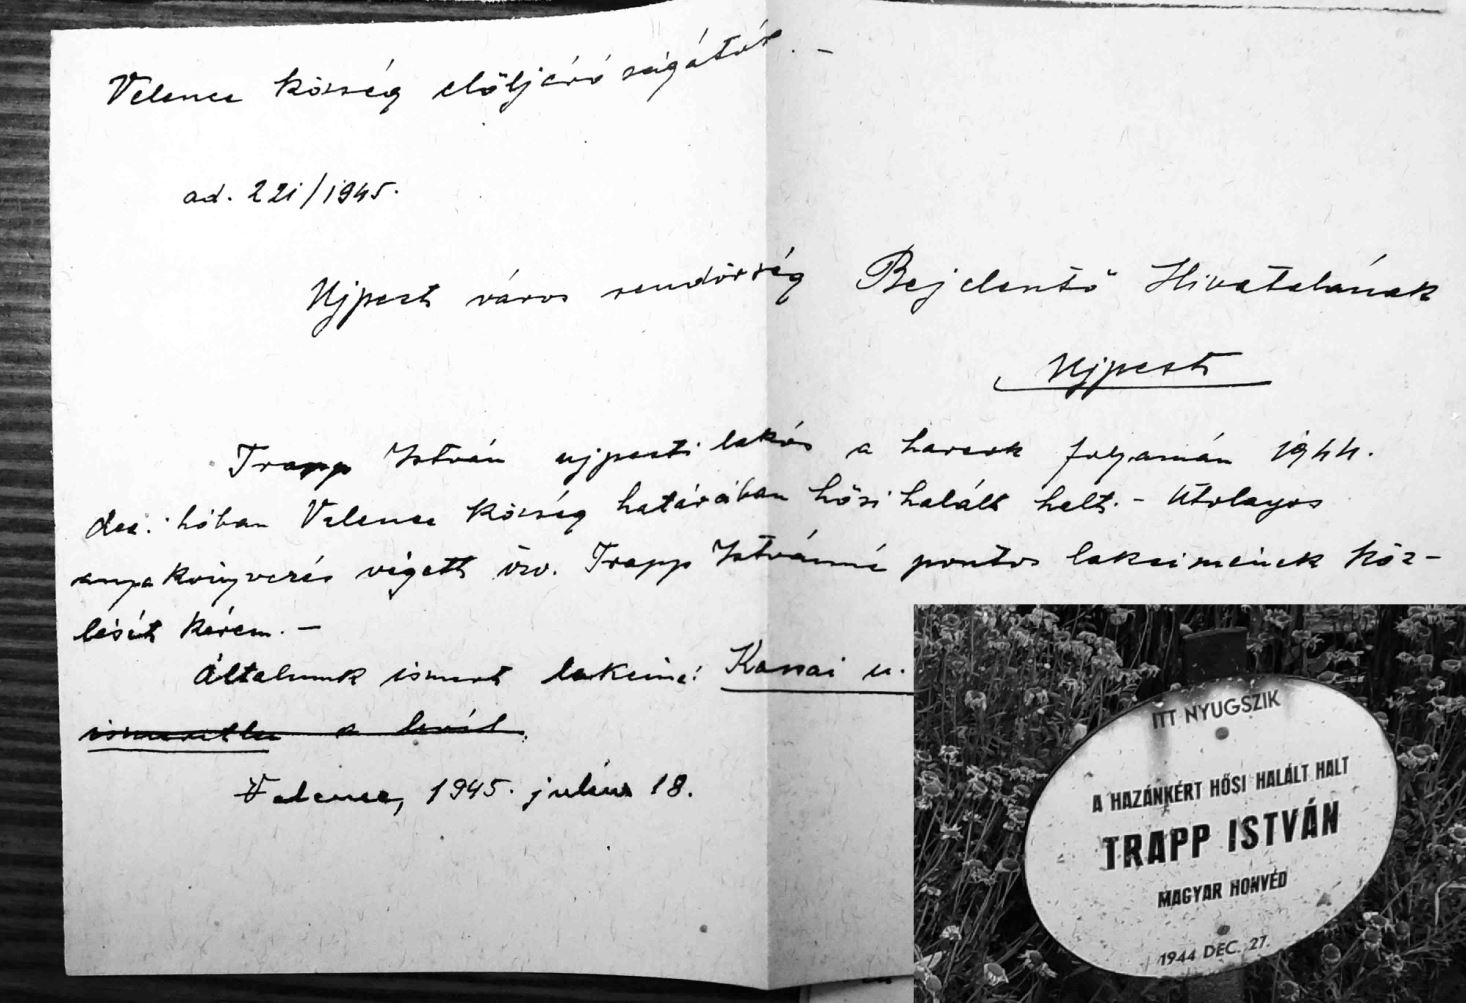 Velence község elöljáróságától. -
ad. 221/1945.
Ujpest város rendőrség Bejelentő Hivatalának
Ujpest
Trapp István ujpesti lakós a harcok folyamán 1944.
dec. hóban Velence község határában hősi halált halt. - Utolagos
anyakönyvezés végett özv. Trapp Istvánné pontos lakcimének köz-
lését kérem. -
Általunk ismert lakcime: Kassai u.
Velence, 1945. július 18.
ITT NYUGSZIK
A HAZÁNKÉRT HŐSI HALÁLT HALT
TRAPP ISTVÁN
MAGYAR HONVÉD
1944 DEC. 27.